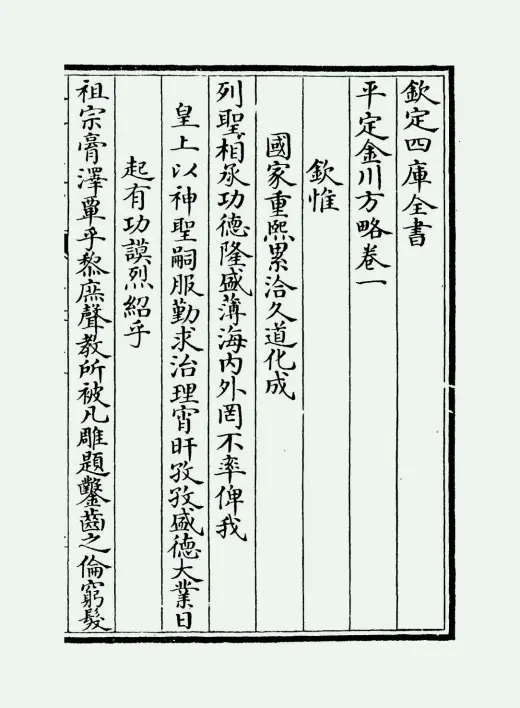 欽定四庫全書
平定金川方略卷一
欽惟
國家重熙累洽久道化成
列聖相承功德隆盛薄海內外罔不率俾我
皇上以神聖嗣服勤求治理宵旰孜孜盛德大業日
起有功謨烈紹乎
祖宗膏澤覃乎黎庶聲教所被凡雕題鑿齒之倫窮髮